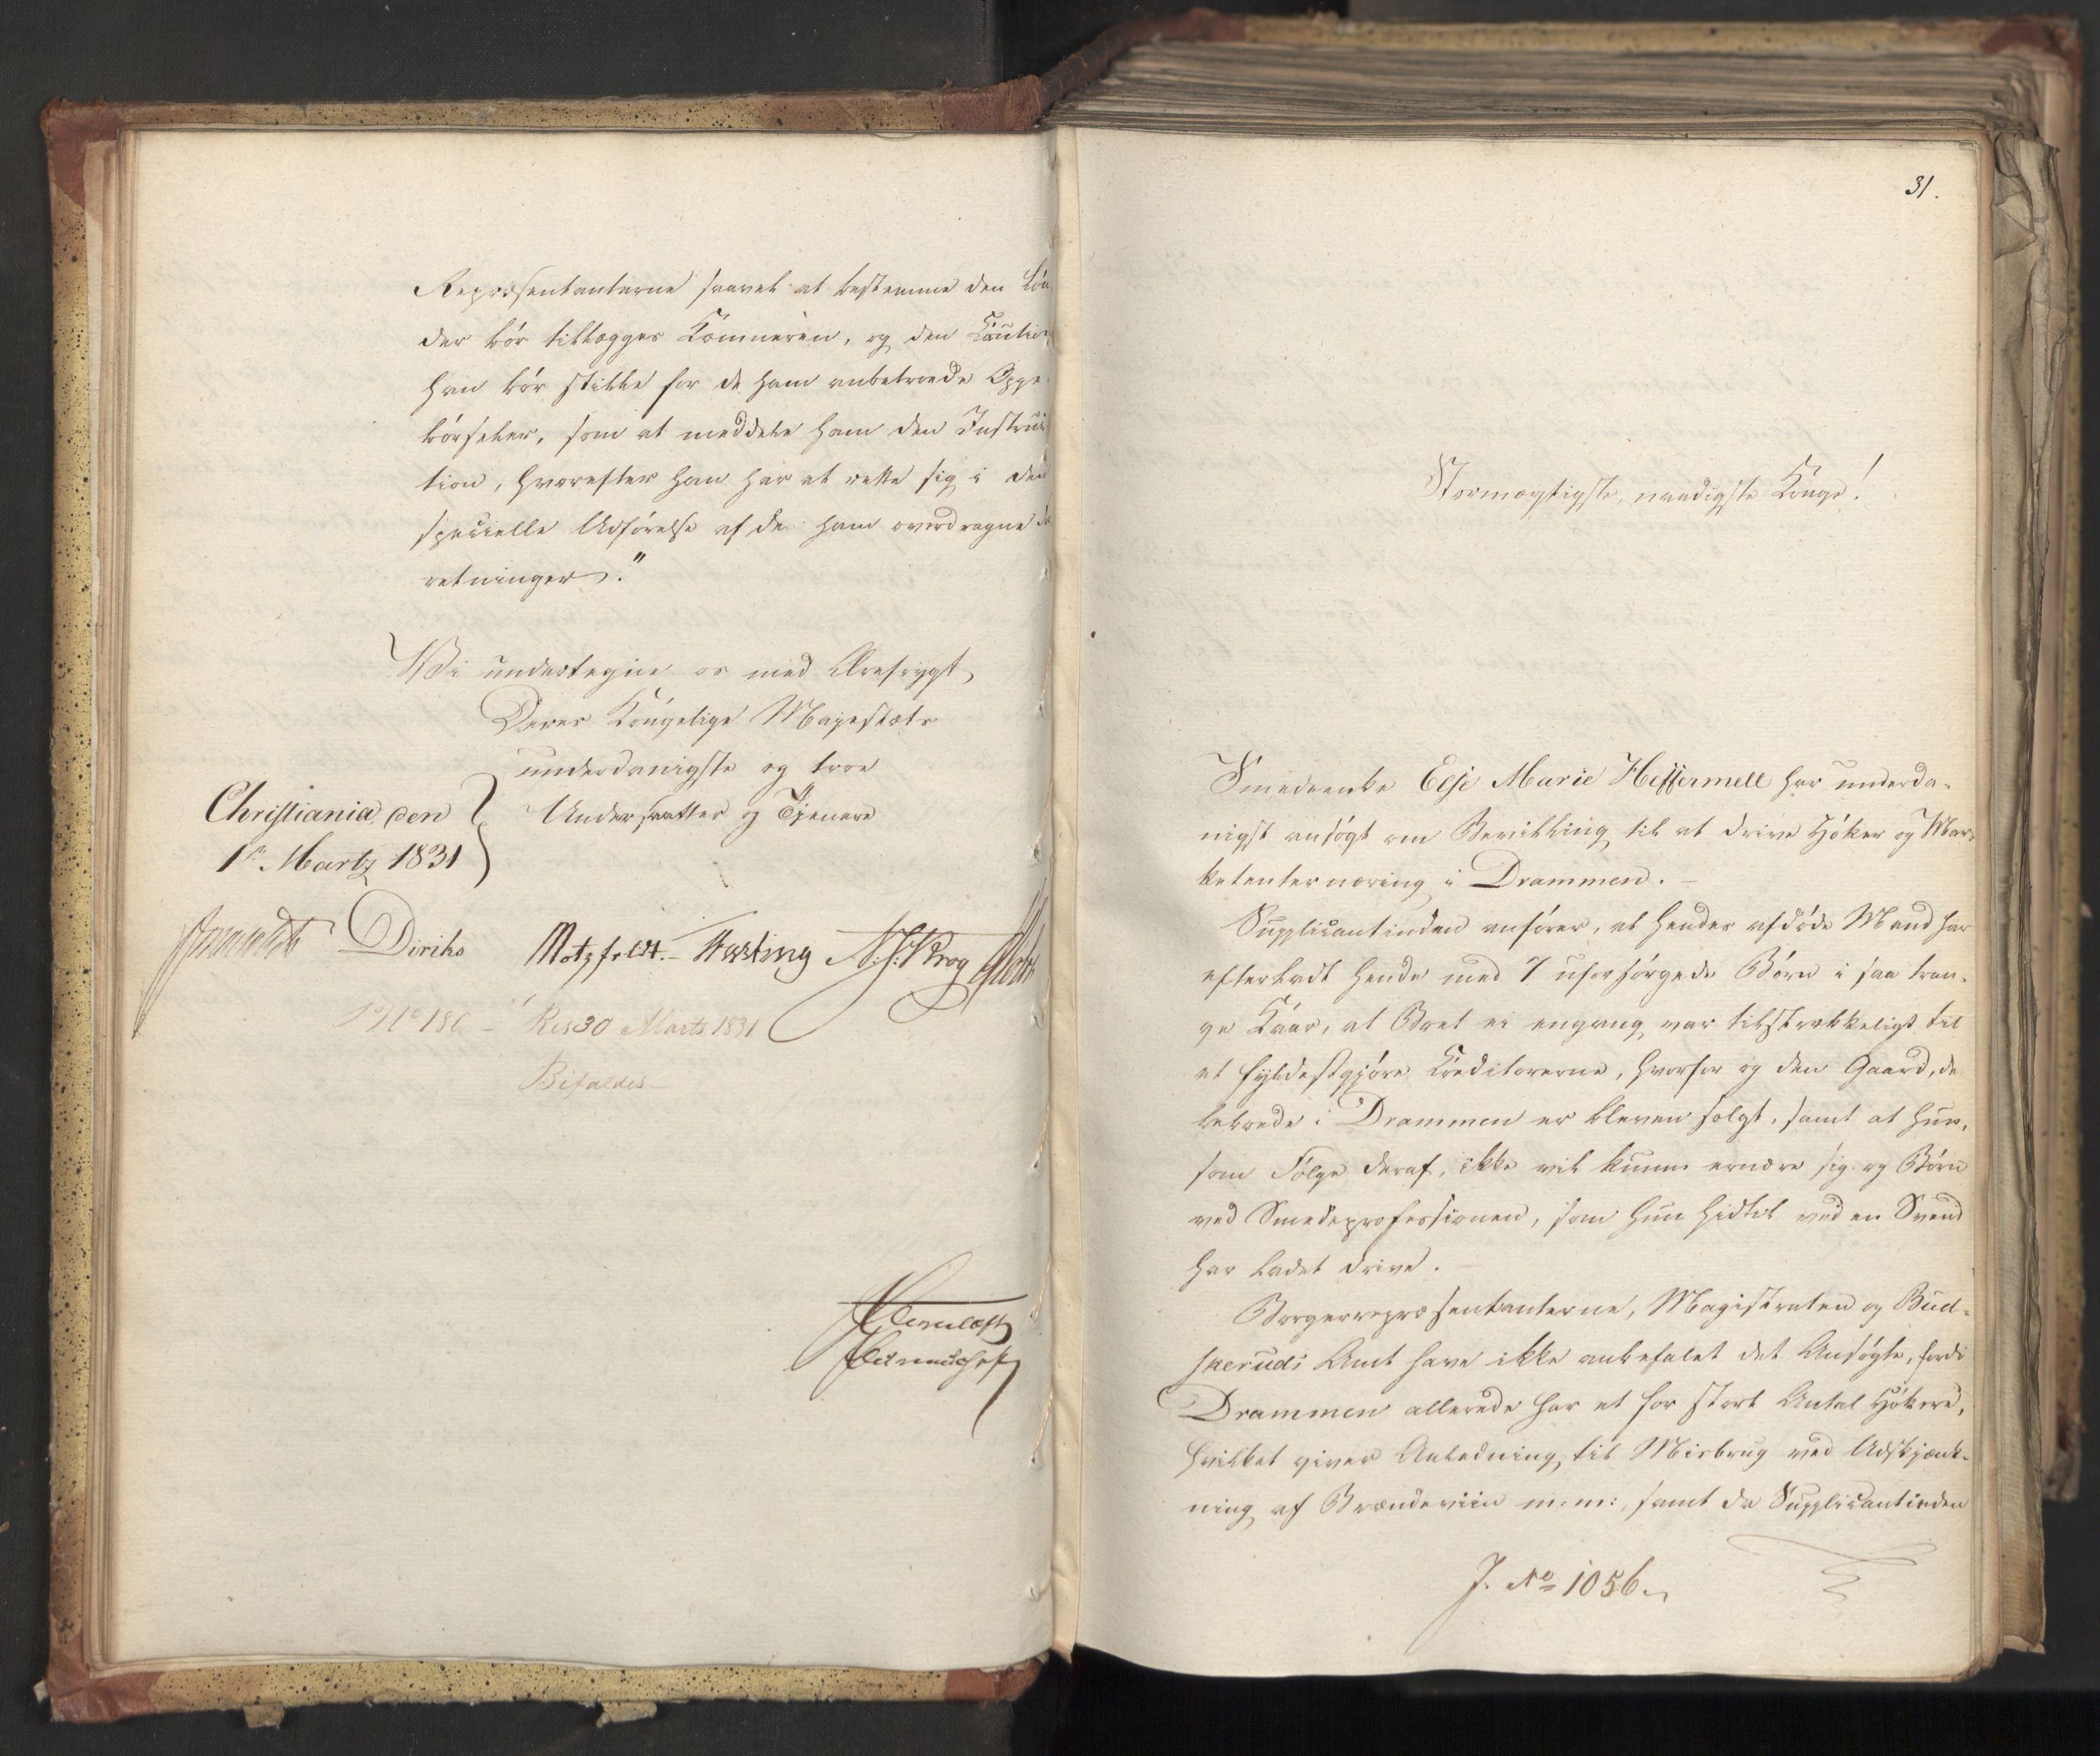 Repræsentanterne saavel at bestemme den Løn
der bör tillægges Kæmneren, og den Caution
han bör stille for de ham anbetroede Oppe-
börseler, som at meddele ham den Instruk-
tion, hvorefter han har at rette sig i den
specielle Udförelse af de ham overdragne
retninger."
Vi undertegne os med Ærefrygt
Deres Kongelige Majestæts
underdanigste og troe
Undersaatter og Tjenere
Christiania, den
1st Martz 1831
Diriks Motzfeldt. N. J. Krog
No 186 - Res 30 Marts 1831
Bifaldes
31.
Stormægtigste, naadigste Konge!
Smedeenke Else Marie Heffermell har underda-
nigst ansögt om Bevilling til at drive Höker og Mar-
ketenternæring i Drammen.
Supplicantinden anförer, at hendes afdöde Mand har
efterladt hende med 7 uforsörgede Börn i saa tran-
ge Kaar, at Boet ei engang var tilstrækkeligt til
at fyldestgjöre Creditorerne, hvorfor og den Gaard, de
beboede i Drammen er bleven solgt, samt at hun,
som Fölge deraf, ikke vil kunne ernære sig og Börn
ved Smedeprofessionen, som hun hidtil ved en Svend
har ladet drive.
Borgerrepræsentanterne, Magistraten og Bud-
skeruds Amt have ikke anbefalet det Ansögte, fordi
Drammen allerede har et for stort Antal Hökere,
hvilket giver Anledning til Misbrug ved Udskjænk-
ning af Brændeviin m: m:, samt da Supplicantinden
J. No 1056.